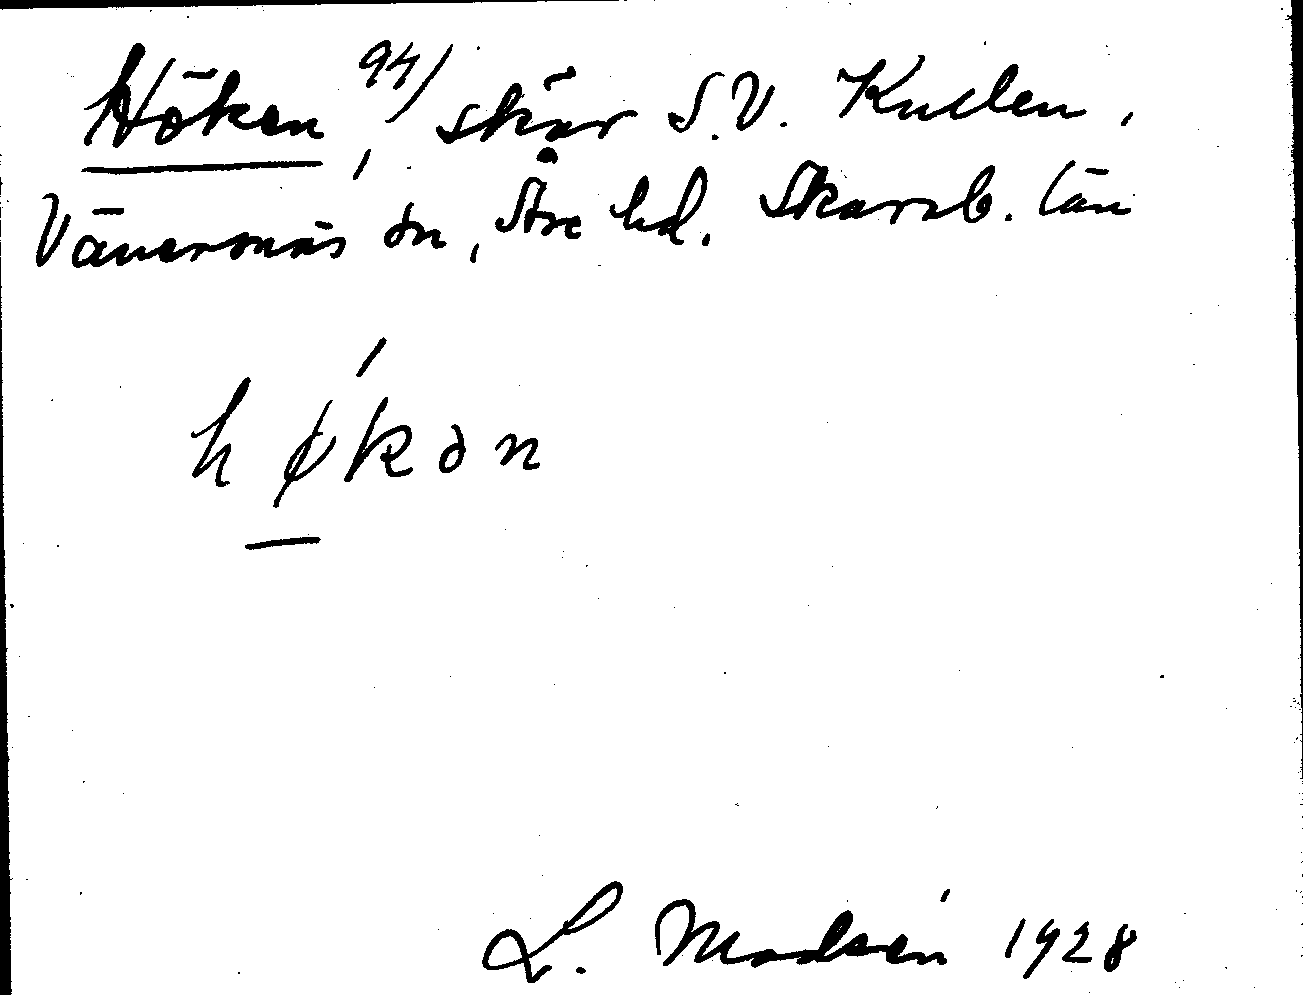 Höken 94/, skär S.V. Kullen,
Vänersnäs sn, Åse hd. Skarab. län
høkən
L. Modeén 1928